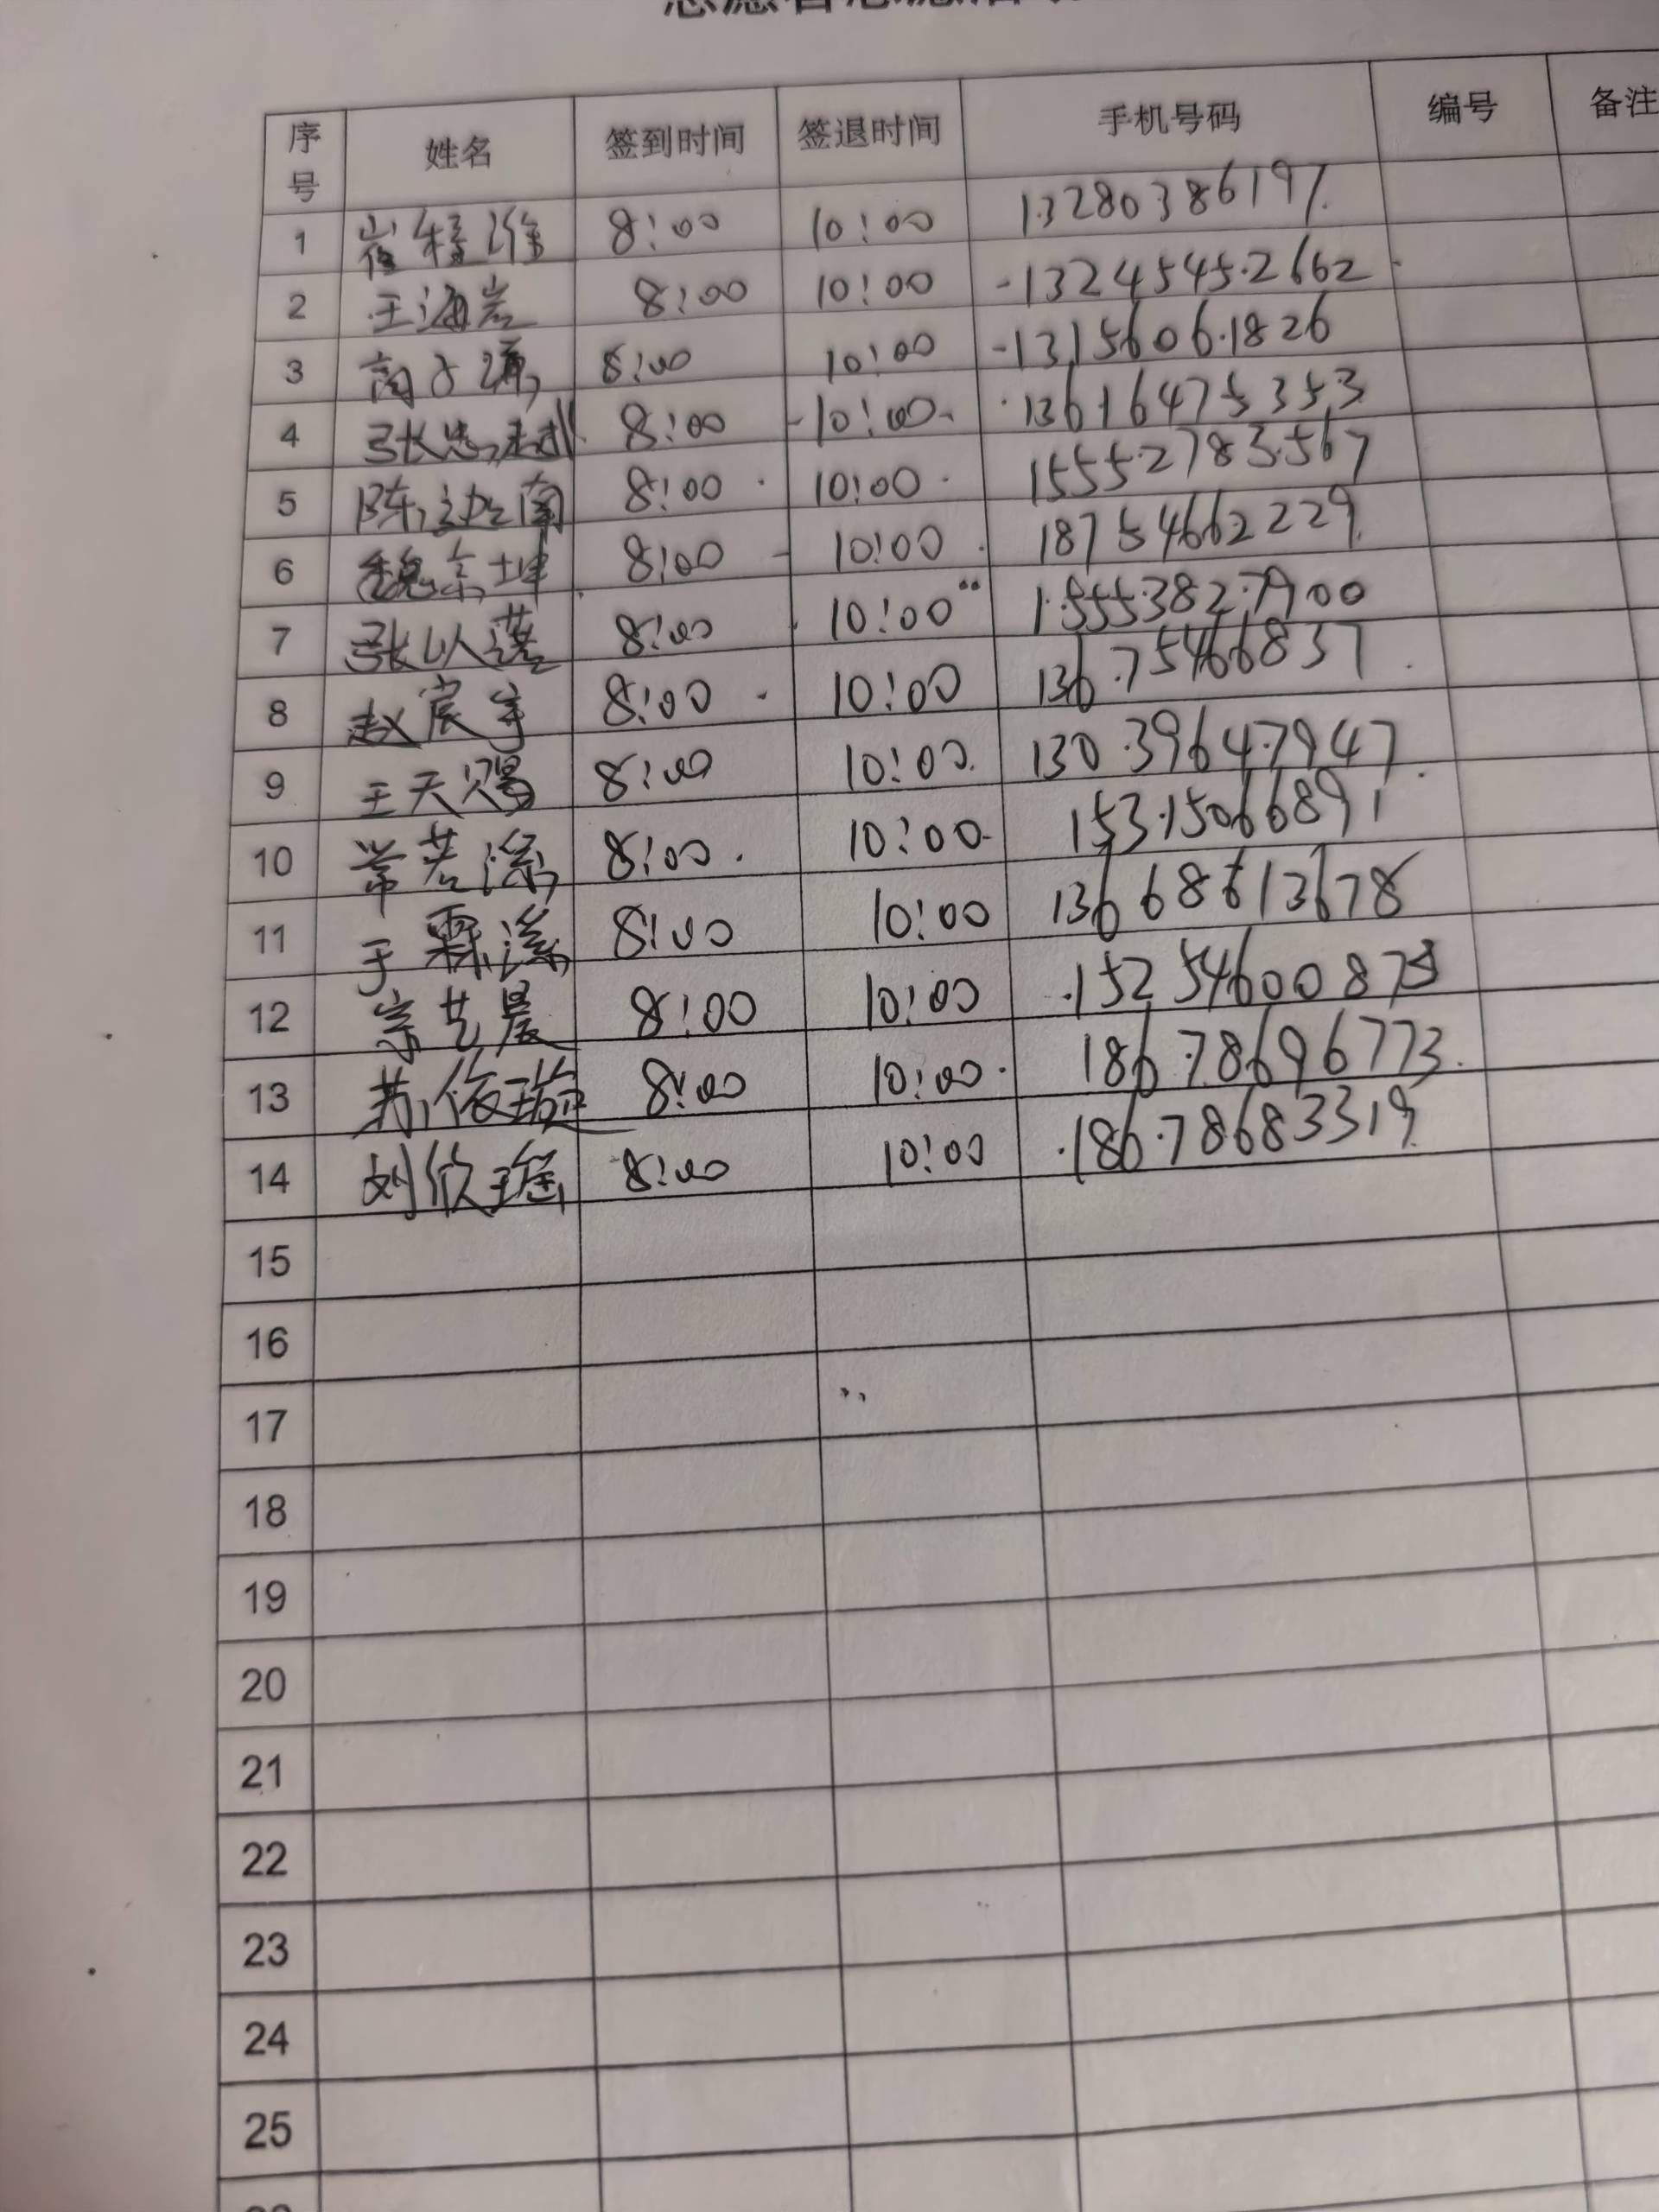 序号 姓名 签到时间 签退时间 手机号码 编号 备注
1 崔梓 8:00 10:00 13280386197
2 王海岩 8:00 10:00 13245452662
3 高子 8:00 10:00 13156061826
4 张忠 8:00 10:00 13616475353
5 陈 南 8:00 10:00 15552783567
6 魏宗坤 8:00 10:00 18754662229
7 张以诺 8:00 10:00 15553827900
8 赵宸宇 8:00 10:00 13675466837
9 王天赐 8:00 10:00 13039647947
10 常若溪 8:00 10:00 15315066891
11 于霖溪 8:00 10:00 13668613678
12 宗艺晨 8:00 10:00 1525460087
13 苏依瑄 8:00 10:00 18678696773
14 刘欣瑶 8:00 10:00 18678683319
15
16
17
18
19
20
21
22
23
24
25